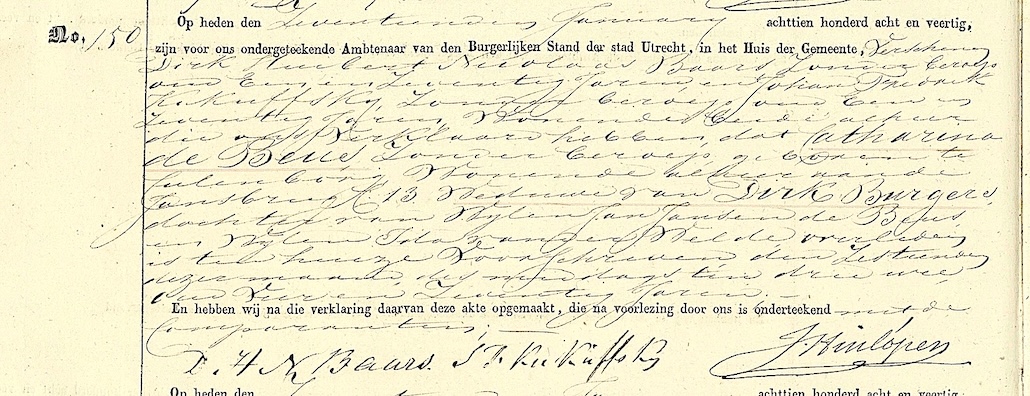 No. 150
Op heden den Zeventienden January achttien honderd acht en veertig,
zijn voor ons ondergeteekende Ambtenaar van den Burgerlijken Stand der stad Utrecht, in het Huis der Gemeente, verschenen
Dirk Huibert Nicolaas Baars, Zonder beroep
oud Een en Zeventig Jaren, en Johan Fredrik
Kukuffsky, Zonder beroep, oud Een en
Zeventig Jaren, Wonende beide alhier
die ons Verklaard hebben, dat Catharina
de Beus Zonder beroep, geboren te
Culenborg Wonende alhier aan de
Jansbrug 13 Weduwe van Dirk Burgers,
dochter van Wylen Jan Jansen de Beus
en Wylen Ida van der Welde overleden
is ten huize Voorschreven den Zestienden
dezer maand, des middags ten drie ure
oud Vier en Zeventig Jaren.
En hebben wij na die verklaring daarvan deze akte opgemaakt, die na voorlezing door ons is onderteekend met de
Comparanten.
D. H N Baars. J F Kukuffsky J. Hinlópen
Op heden den achttien honderd acht en veertig,